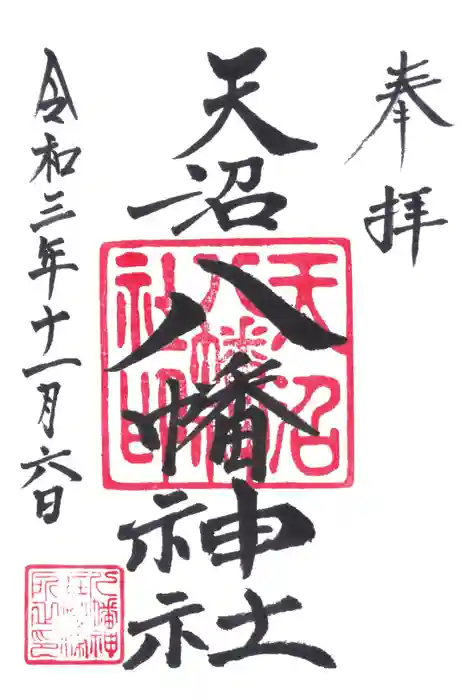 奉拝
天沼八幡神社
令和三年十一月六日
天沼八幡社印